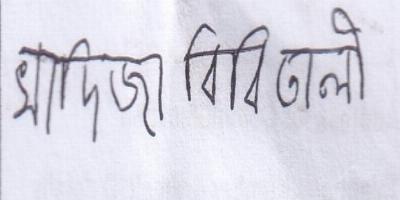 খাদিজা বিবি ঢালী